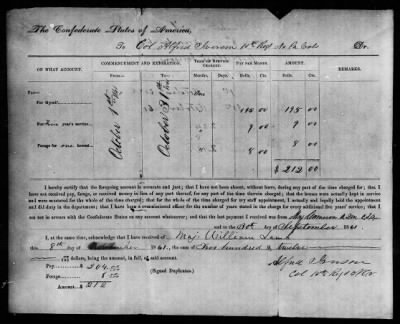 The Confederate States of America,
To Col Alfred Iverson Dr.
ON WHAT ACCOUNT.
COMMENCEMENT AND EXPIRATION.
TERM OF SERVICE CHARGED.
PAY PER MONTH.
AMOUNT.
REMARKS.
From—
To—
Months.
Days.
Dols.
Cts.
Dols.
Cts.
PAY—
For Myself
October 1st 1861
October 31st
195 00
195 00
For years' service
9 00
9 00
Forage for horses
8 00
8 00
$ 212 00
I hereby certify that the foregoing account is accurate and just; that I have not been absent, without leave, during any part of the time charged for; that I have
not received pay, forage, or received money in lieu of any part thereof, for any part of the time therein charged; that the horses were actually kept in service
and were mustered for the whole of the time charged; that for the whole of the time charged for my staff appointment, I actually and legally held the appointment
and did duty in the department; that I have been a commissioned officer for the number of years stated in the charge for every additional five years' service; that I am
not in arrears with the Confederate States on any account whatsoever; and that the last payment I received was from
and to the 30th of September 1861.
I, at the same time, acknowledge that I have received of Maj. William
this 8th day of 1861, the sum of Two hundred & twelve
dollars, being the amount, in full, of said account.
Pay, $ 204
(Signed Duplicates.)
Forage, 8
Amount, $ 212
Alfred Iverson
Col